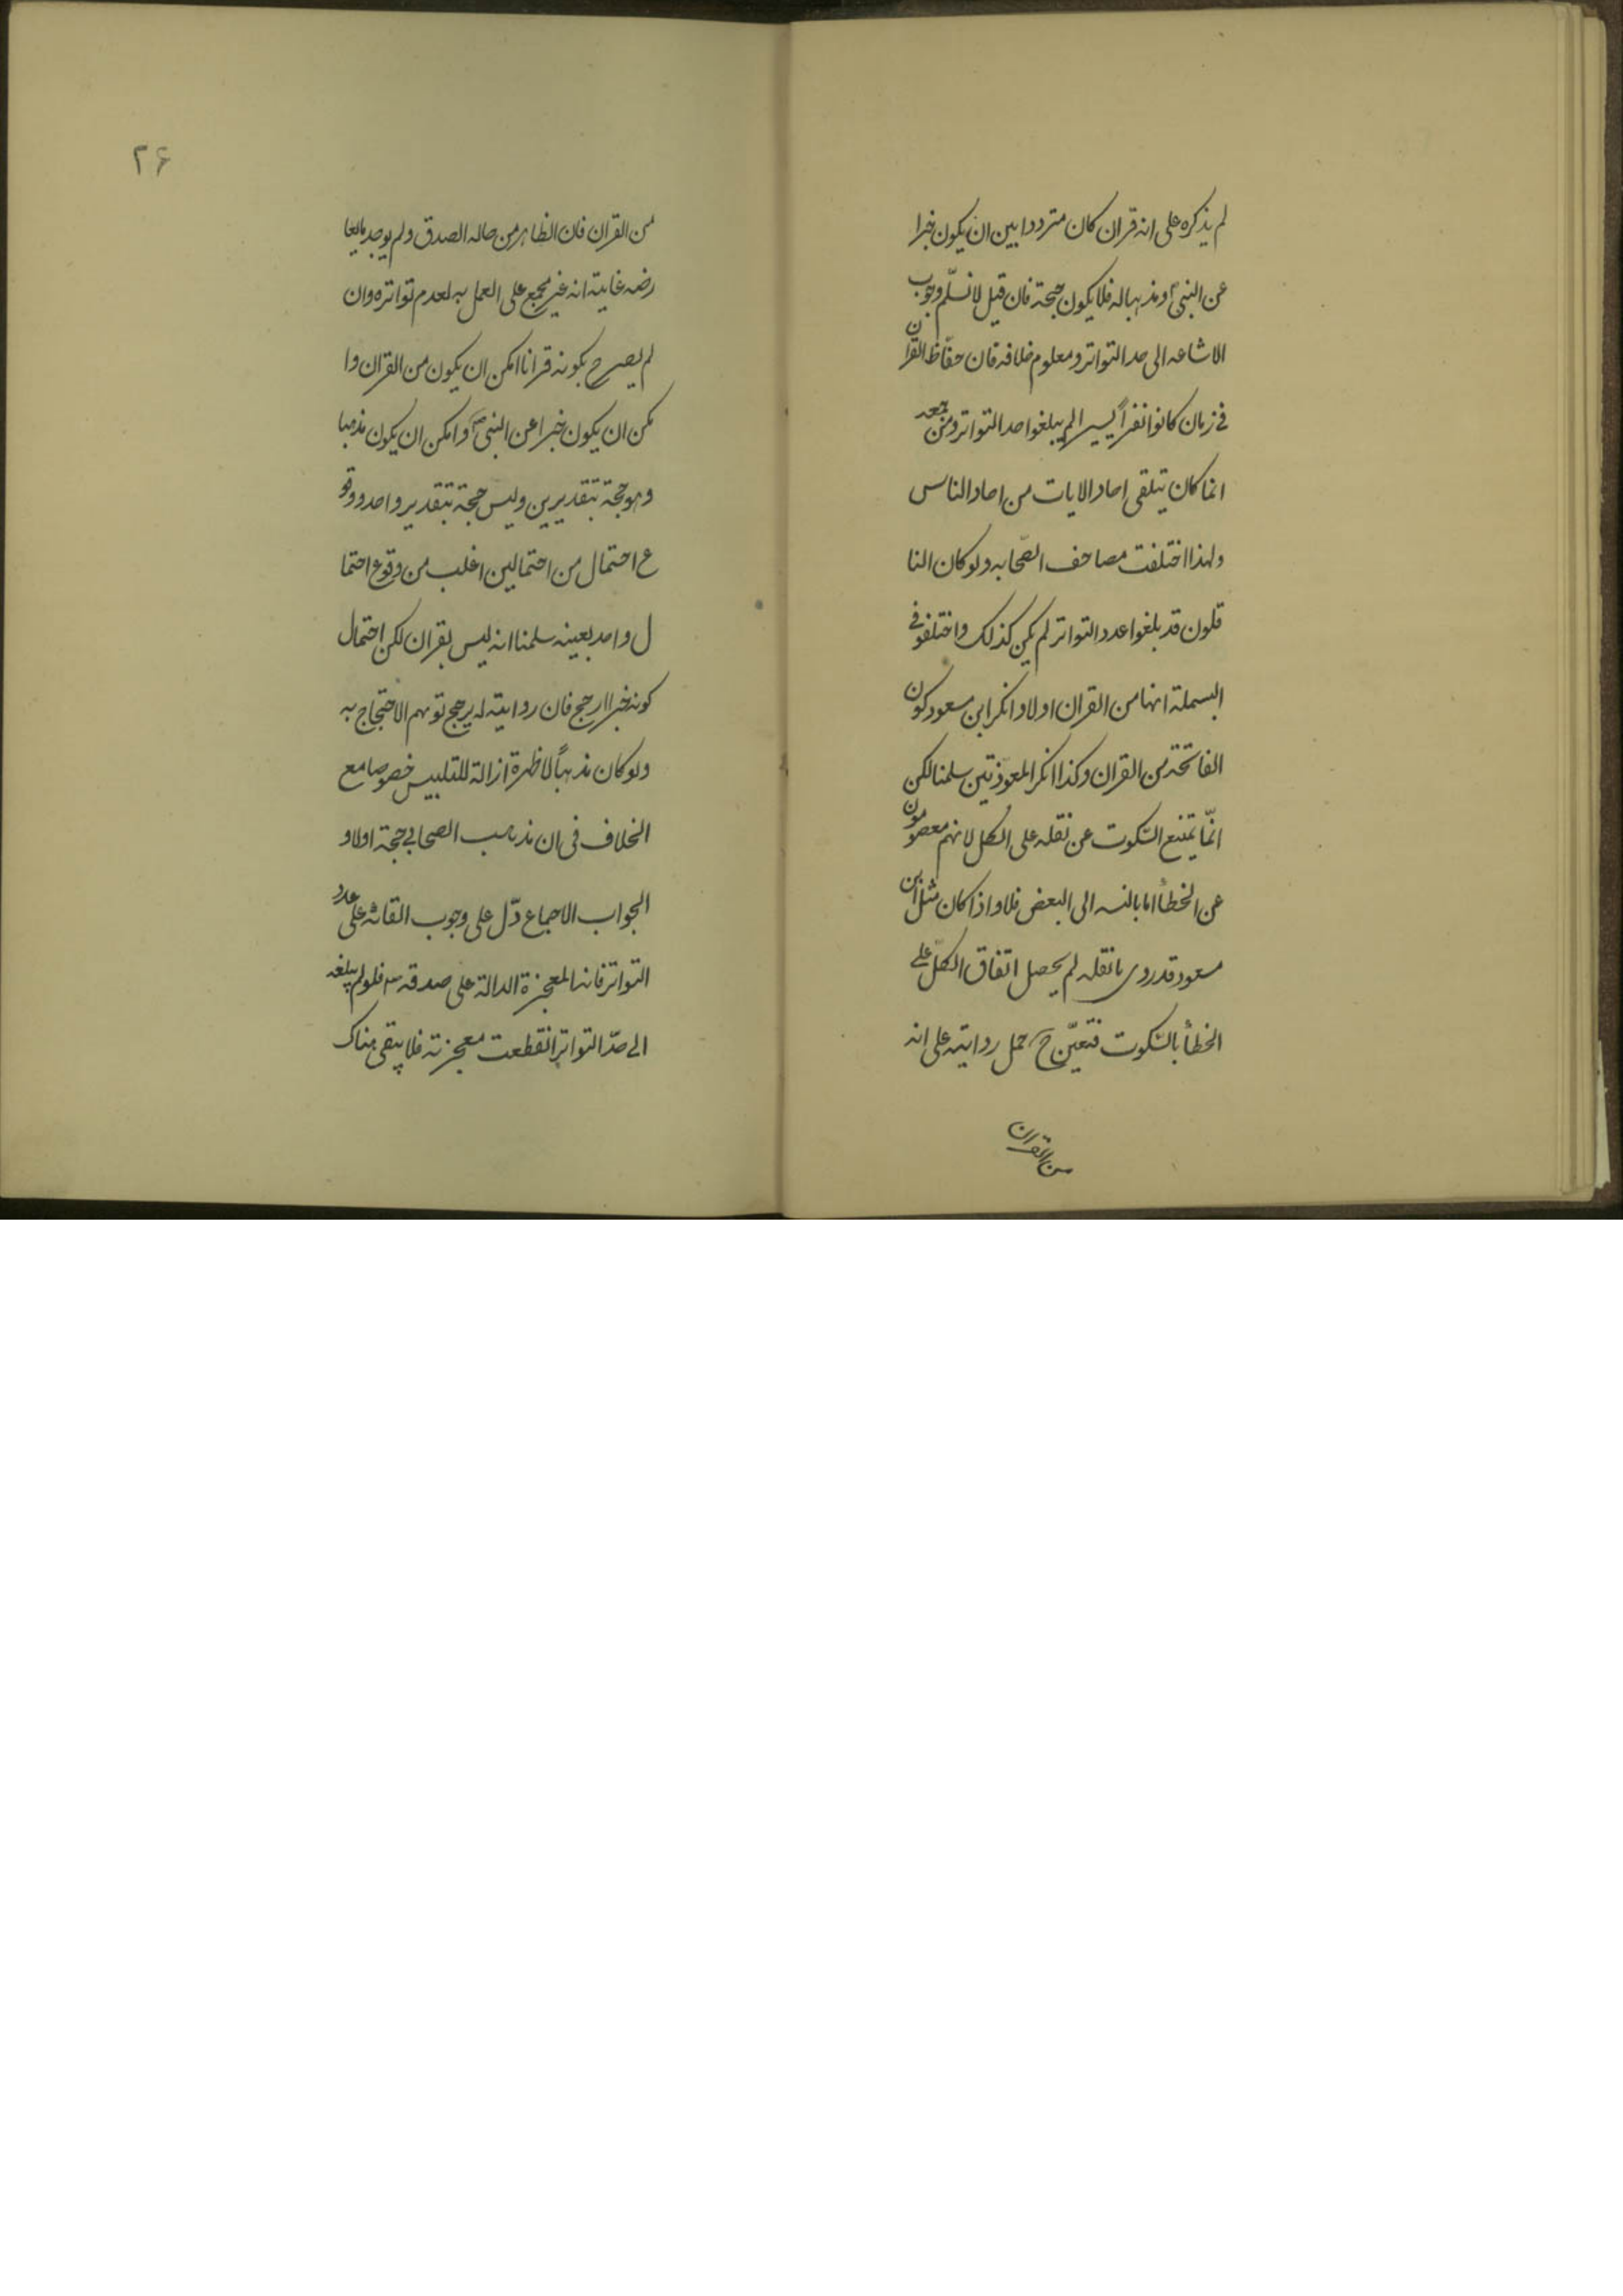 لم يذكره على انه قران كان مترددا بين ان يكون خبرا
عن النبى او مذهبا له فلا يكون حجة فان قيل لا نسلّم وجوب
الاشاعه الى حد التواتر و معلوم خلافه فان حفّاظ القران
فى زمان كانوا نفراً يسيرا لم يبلغوا حد التواتر و من جمعه
انما كان يتلقى احاد الايات من احاد الناس
ولهذا اختلفت مصاحف الصّحابه و لو كان النا
قلون قد بلغوا عدد التواتر لم يكن كذلك و اختلفو فى
البسملة انها من القران اولا و انكر ابن مسعود كون
الفاتحة من القران و كذا انكر المعوّذتين سلمنا لكن
انمّا يمتنع السّكوت عن نقله على الكل لانهم معصومون
عن الخطأ اما بالنسه الى البعض فلا و اذا كان مثل ابن
مسعود قد روى ما نقله لم يحصل اتفاق الكلّ على
الخطأ بالسّكوت فتعيّن ح حمل روايته على انه
من القران
٢۶
من القران فان الظاهر من حاله الصدق و لم يوجد مايعا
رضه غايته انه غير مجمع على العمل به لعدم تواتره و ان
لم يصرح بكونه قرانا امكن ان يكون من القران و ا
مكن ان يكون خبرا عن النبى ص و امكن ان يكون مذهبا
و هو حجة بتقديرين و ليس حجة بتقدير واحد و وقو
ع احتمال من احتمالين اغلب من وقوع احتما
ل واحد بعينه سلمنا انه ليس بقران لكن احتمال
كونه خبرا ارجح فان روايته له يرجح توهم الاحتجاج به
و لو كان مذهباً لاظهرة ازالة للتلبيس خصوصا مع
الخلاف فى ان مذهب الصحابى حجة اولا و
الجواب الاجماع دّل على وجوب القائه على عدد
التواتر فانه المعجزة الدالة على صدقه فلو لم يبلغه
الى حدّ التواتر انقطعت معجزته فلا يبقى هناك